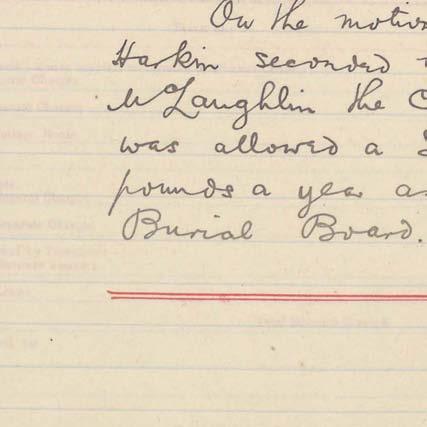 On the motion
Harkin seconded
McLaughlin the
was allowed a
pounds a year as
Burial Board.